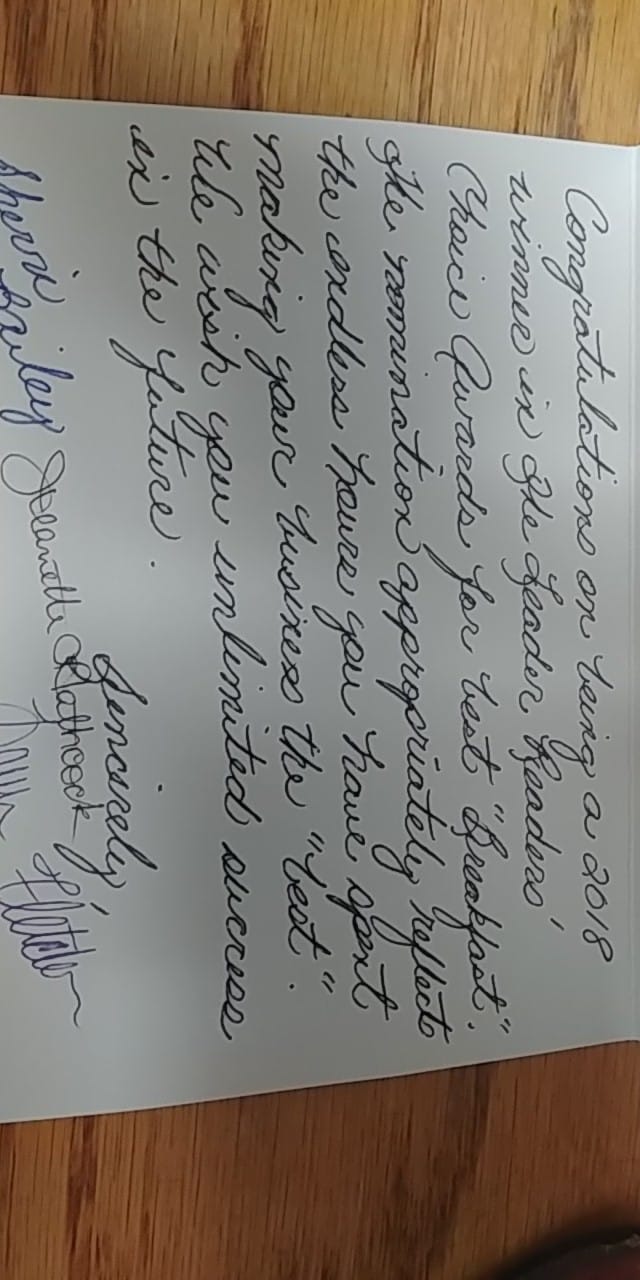 Congratulations on being a 2018
winner in The Leader Readers'
Choice Awards for best "Breakfast".
The nomination appropriately reflects
the endless hours you have spent
making your business the "best".
We wish you unlimited success
in the future.
Sincerely
Sherri Bailey Jeanette Hathcock